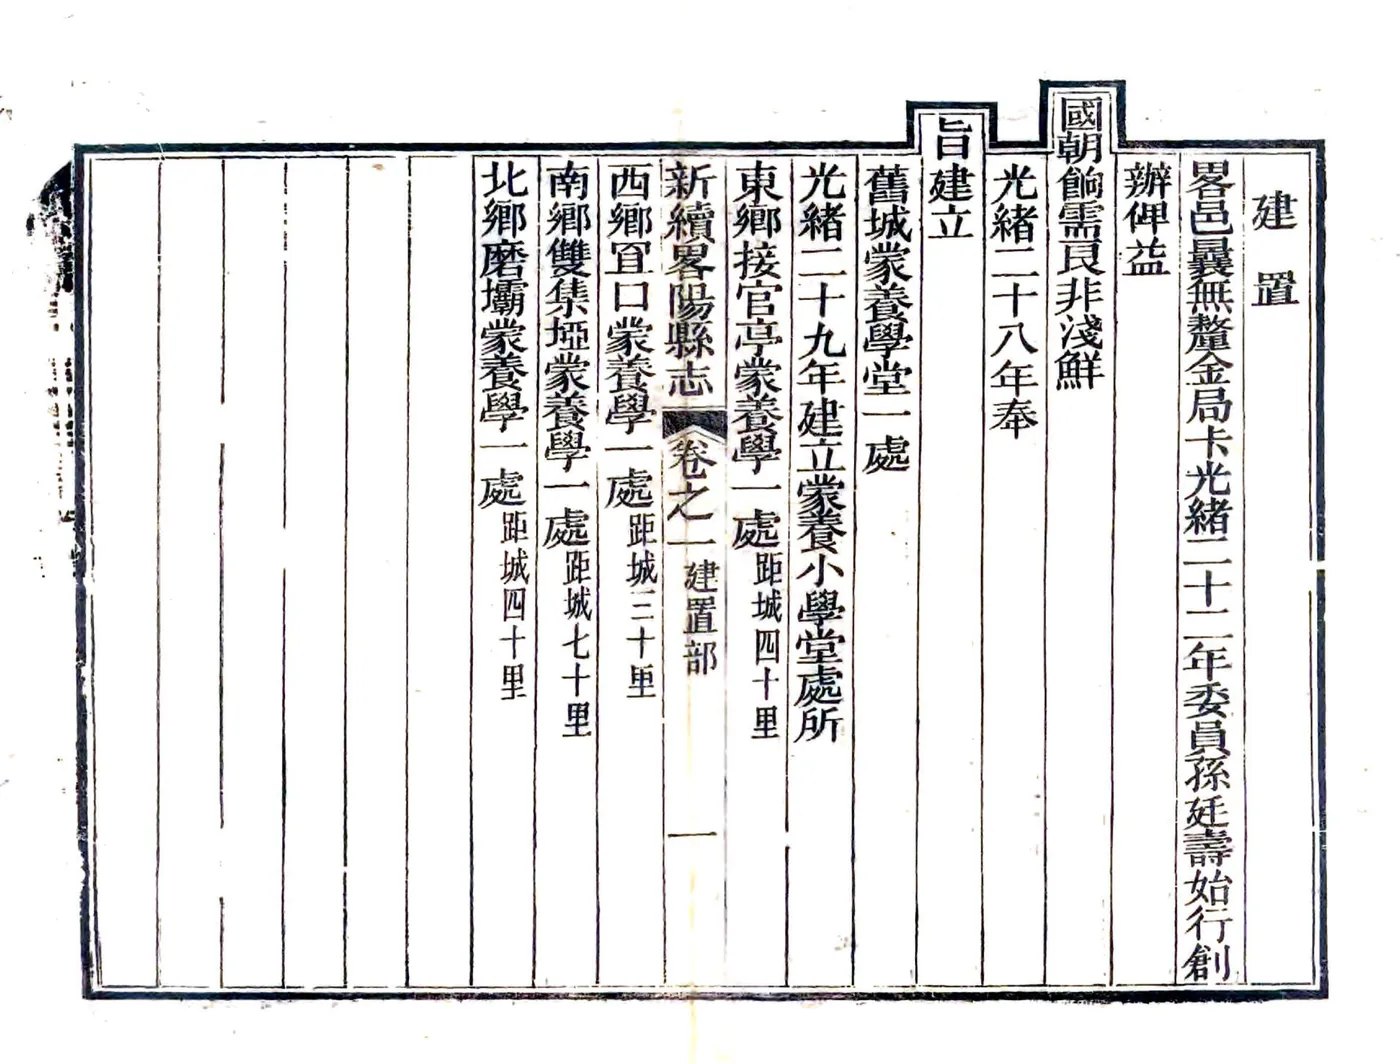 建置
畧邑曩無釐金局卡光緒二十二年委員孫廷壽始行創
辦俾益
國朝餉需良非淺鮮
光緒二十八年奉
旨建立
舊城蒙養學堂一處
光緒二十九年建立蒙養小學堂處所
東鄉接官亭蒙養學一處距城四十里
新續畧陽縣志 卷之一 建置部 一
西鄉冝口蒙養學一處距城三十里
南鄉雙集埡蒙養學一處距城七十里
北鄉磨壩蒙養學一處距城四十里